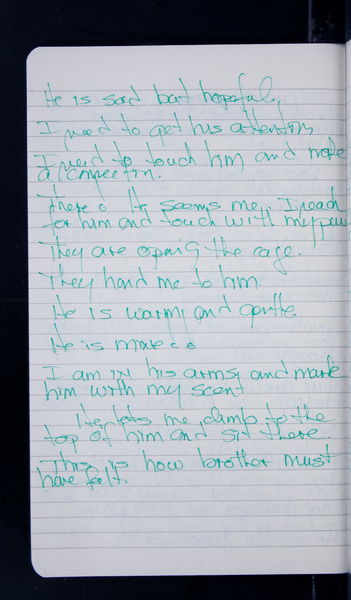 He is sad but hopeful.
I need to get his attention
I need to touch him and make
a connection.
There! He seems me. I reach
for him and touch with my paw
They are opening the cage.
They hand me to him.
He is warm, and gentle
He is mine.
I am in his arms, and mark
him with my scent
He lets me climb to the
top of him and sit there
This is how brother must
have felt.